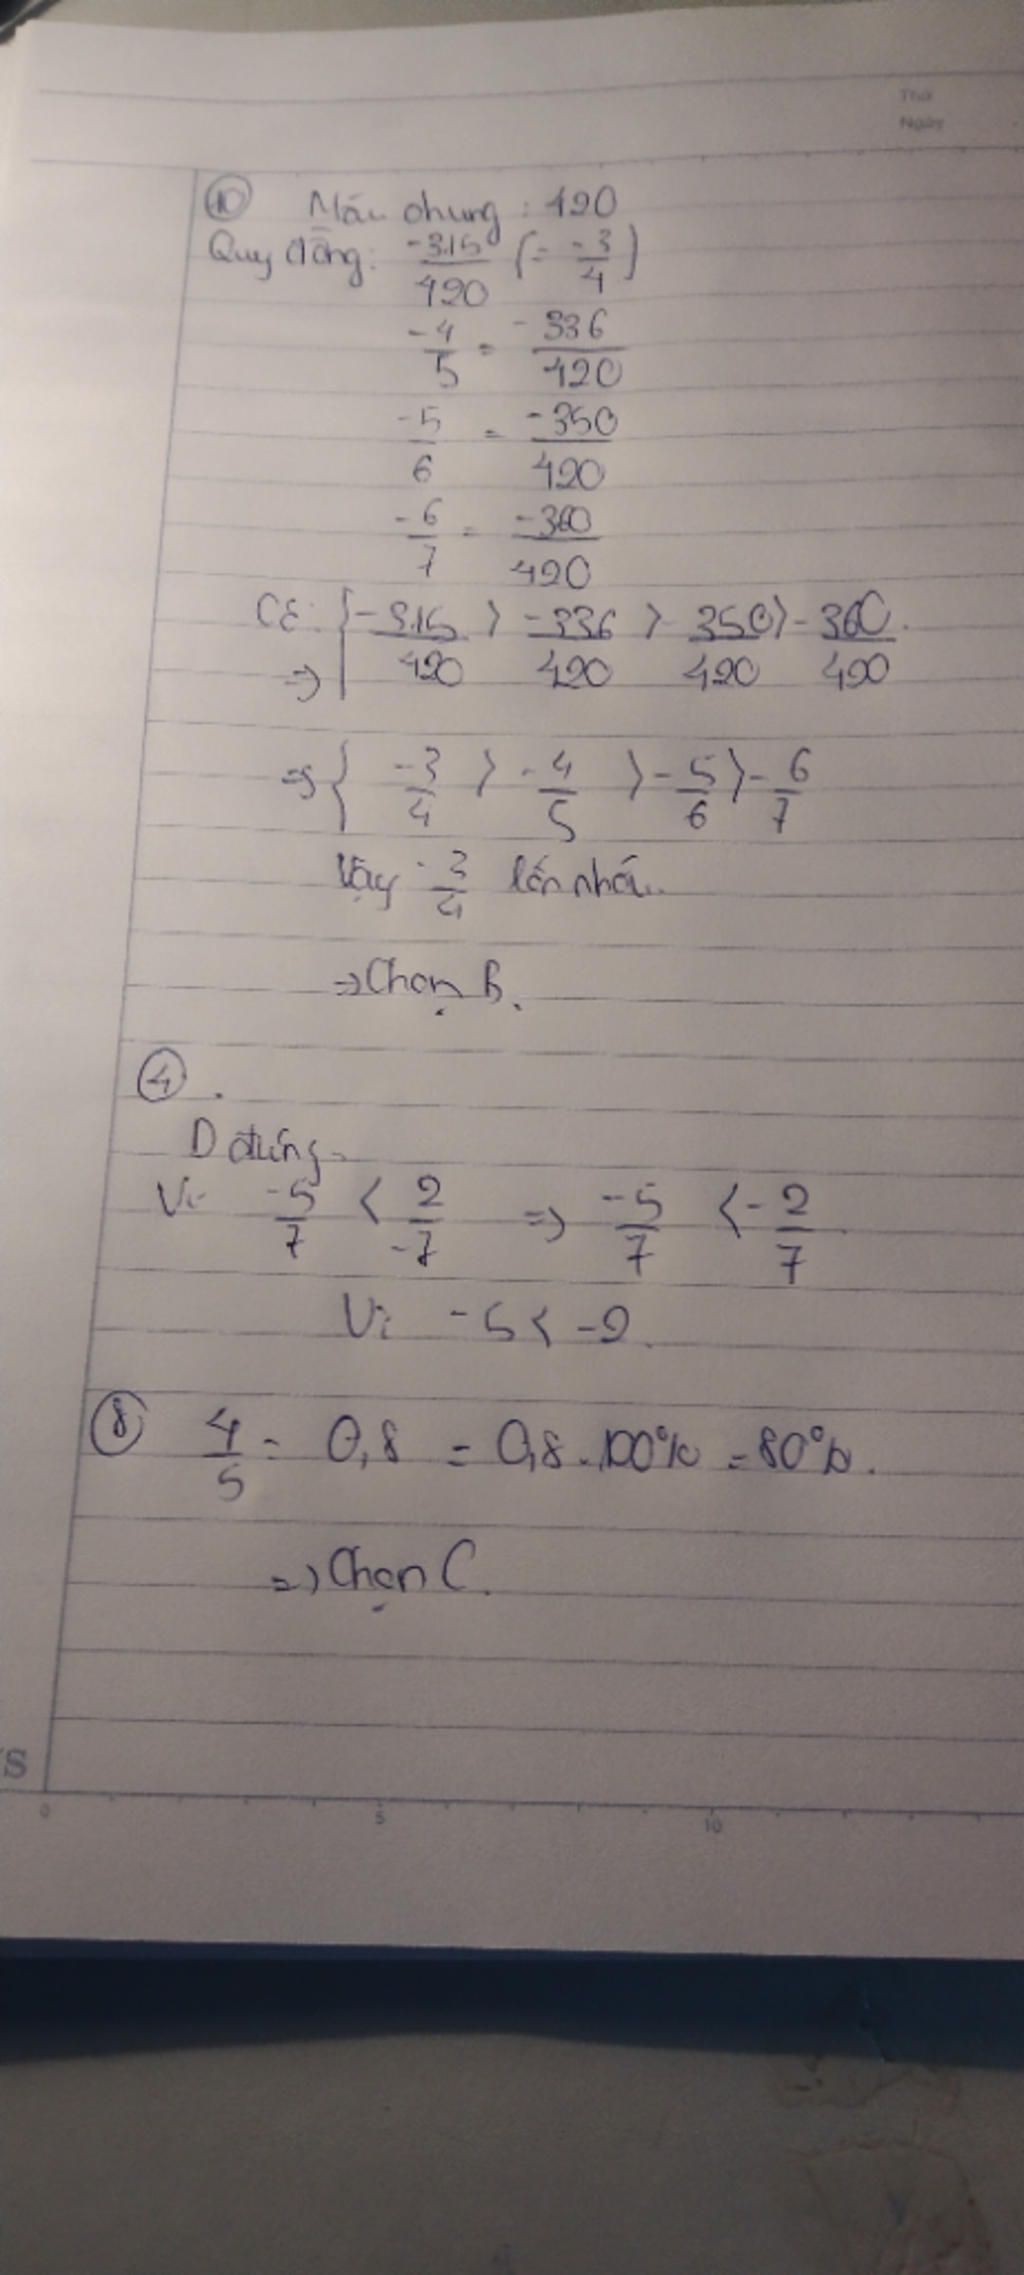 Thứ
Ngày
⑩ Mẫu chung : 420
Quy đồng: -315/420 (= -3/4)
-4/5 = -336/420
-5/6 = -350/420
-6/7 = -360/420
-315/420 > -336/420 > 350/420 > -360/420.
=>
=> { -3/4 > -4/5 > -5/6 > -6/7
Vậy -3/4 lớn nhất.
=> Chọn B.
④.
D đúng.
Vì -5/7 < 2/-7 => -5/7 < -2/7.
Vì -5 < -2.
⑧ 4/5 = 0,8 = 0,8.100% = 80%.
=> Chọn C.
S
0 5 10